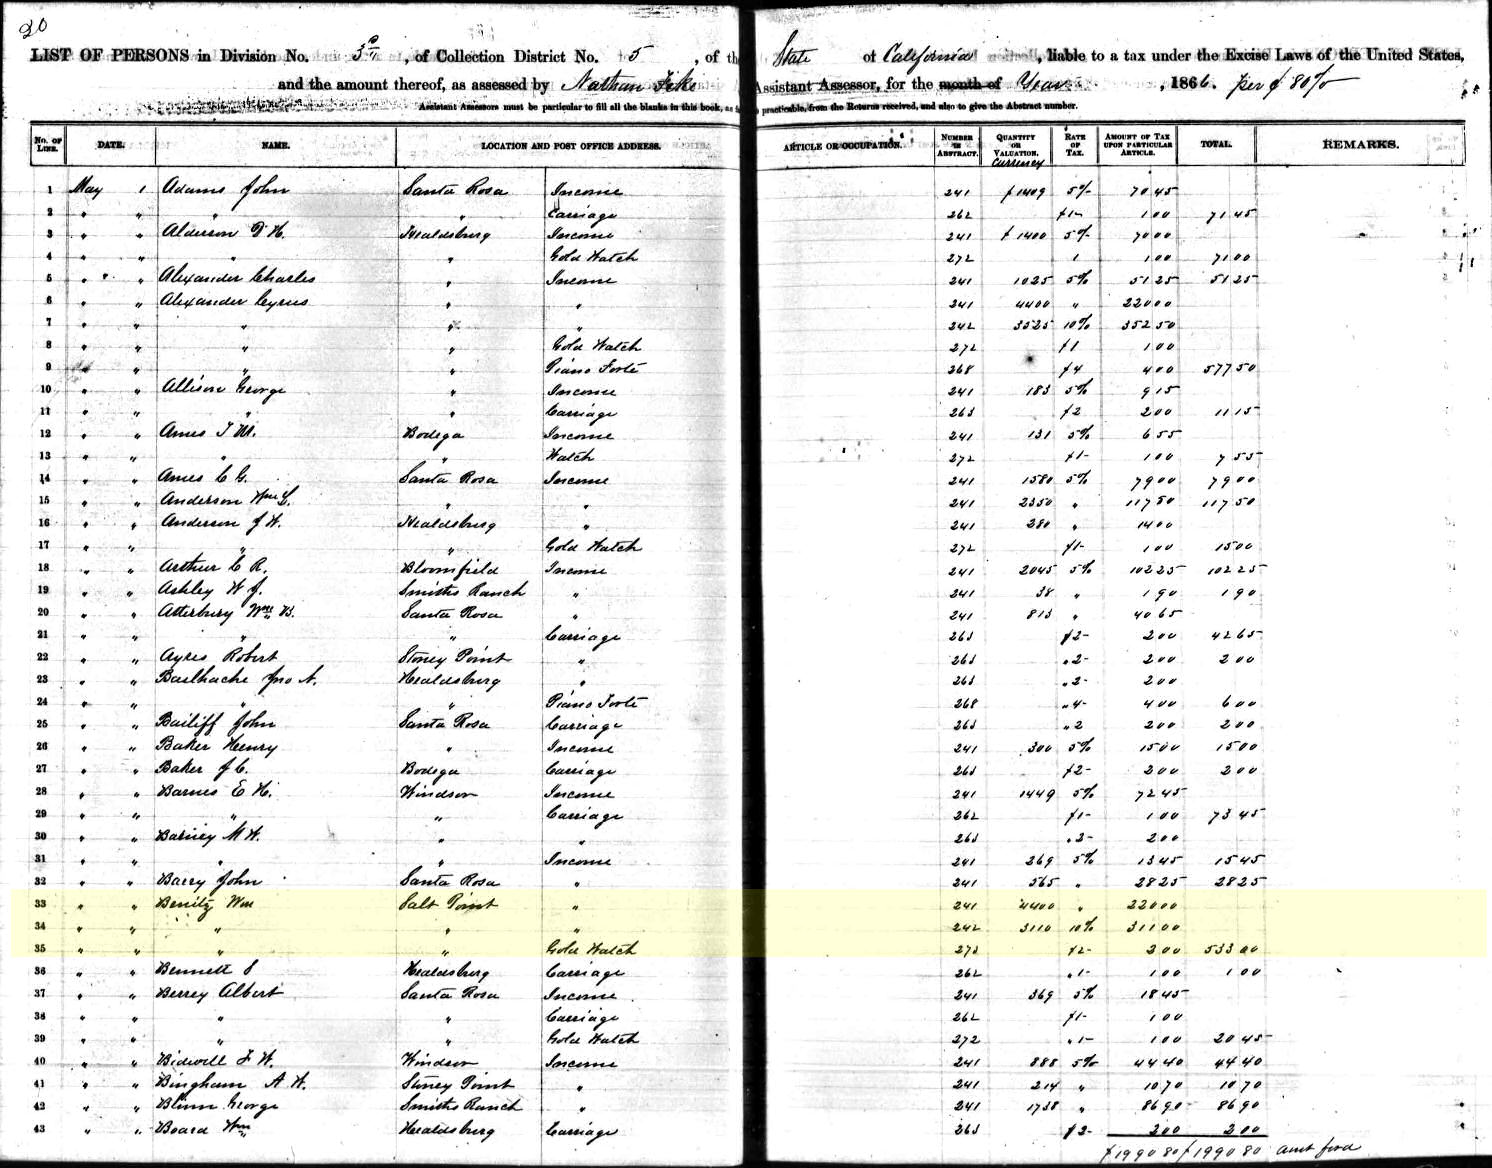 20
LIST OF PERSONS in Division No. 3rd, of Collection District No. 5, of the State of California, liable to a tax under the Excise Laws of the United States,
and the amount thereof, as assessed by Nathan Fike Assistant Assessor, for the month of Year, 1866. per
Assistant Assessors must be particular to fill all the blanks in this book, as practicable, from the Returns received, and also to give the Abstract number.
No. OF LINE. DATE. NAME. LOCATION AND POST OFFICE ADDRESS. ARTICLE OR OCCUPATION. NUMBER IN ABSTRACT. QUANTITY OR VALUATION. Currency RATE OF TAX. AMOUNT OF TAX UPON PARTICULAR ARTICLE. TOTAL. REMARKS.
1 May 1 Adams John Santa Rosa Income 241 $1409 5% 70 45
2 " " " " Carriage 262 $1- 1 00 71 45
3 " " Alderson D H. Healdsburg Income 241 $1400 5% 70 00
4 " " " " Gold Watch 272 1 1 00 71 00
5 " " Alexander Charles " Income 241 1025 5% 51 25 51 25
6 " " Alexander Cyrus " " 241 4400 " 220 00
7 " " " " " 242 3525 10% 352 50
8 " " " " Gold Watch 272 $1 1 00
9 " " " " Piano Forte 268 $4 4 00 577 50
10 " " Allison George " Income 241 183 5% 9 15
11 " " " " Carriage 263 $2 2 00 11 15
12 " " Ames T M. Bodega Income 241 131 5% 6 55
13 " " " " Watch 272 $1- 1 00 7 55
14 " " Ames C G. Santa Rosa Income 241 1580 5% 79 00 79 00
15 " " Anderson Wm L. " " 241 2350 " 117 50 117 50
16 " " Anderson J W. Healdsburg " 241 280 " 14 00
17 " " " " Gold Watch 272 $1- 1 00 15 00
18 " " Arthur C R. Bloomfield Income 241 2045 5% 102 25 102 25
19 " " Ashley W J. Smiths Ranch " 241 38 " 1 90 1 90
20 " " Atterbury Wm B. Santa Rosa " 241 813 " 40 65
21 " " " " Carriage 263 $2- 2 00 42 65
22 " " Ayres Robert Stoney Point " 263 "2- 2 00 2 00
23 " " Bailhache Jno N. Healdsburg " 263 "2- 2 00
24 " " " " Piano Forte 268 "4- 4 00 6 00
25 " " Bailiff John Santa Rosa Carriage 263 "2 2 00 2 00
26 " " Baker Henry " Income 241 300 5% 15 00 15 00
27 " " Baker J C. Bodega Carriage 263 $2- 2 00 2 00
28 " " Barnes E H. Windsor Income 241 1449 5% 72 45
29 " " " " Carriage 262 $1- 1 00 73 45
30 " " Barney M W. " " 263 "2- 2 00
31 " " " " Income 241 269 5% 13 45 15 45
32 " " Barry John Santa Rosa " 241 565 " 28 25 28 25
33 " " Benitz Wm Salt Point " 241 4400 " 220 00
34 " " " " " 242 3110 10% 311 00
35 " " " " Gold Watch 273 $2- 2 00 533 00
36 " " Bennett S Healdsburg Carriage 262 "1- 1 00 1 00
37 " " Berrey Albert Santa Rosa Income 241 369 5% 18 45
38 " " " " Carriage 262 $1- 1 00
39 " " " " Gold Watch 272 "1- 1 00 20 45
40 " " Bidwell F W. Windsor Income 241 888 5% 44 40 44 40
41 " " Bingham A W. Stoney Point " 241 214 " 10 70 10 70
42 " " Blinn George Smiths Ranch " 241 1738 " 86 90 86 90
43 " " Board Wm Healdsburg Carriage 263 $2- 2 00 2 00
$1990 80 $1990 80 amt ford